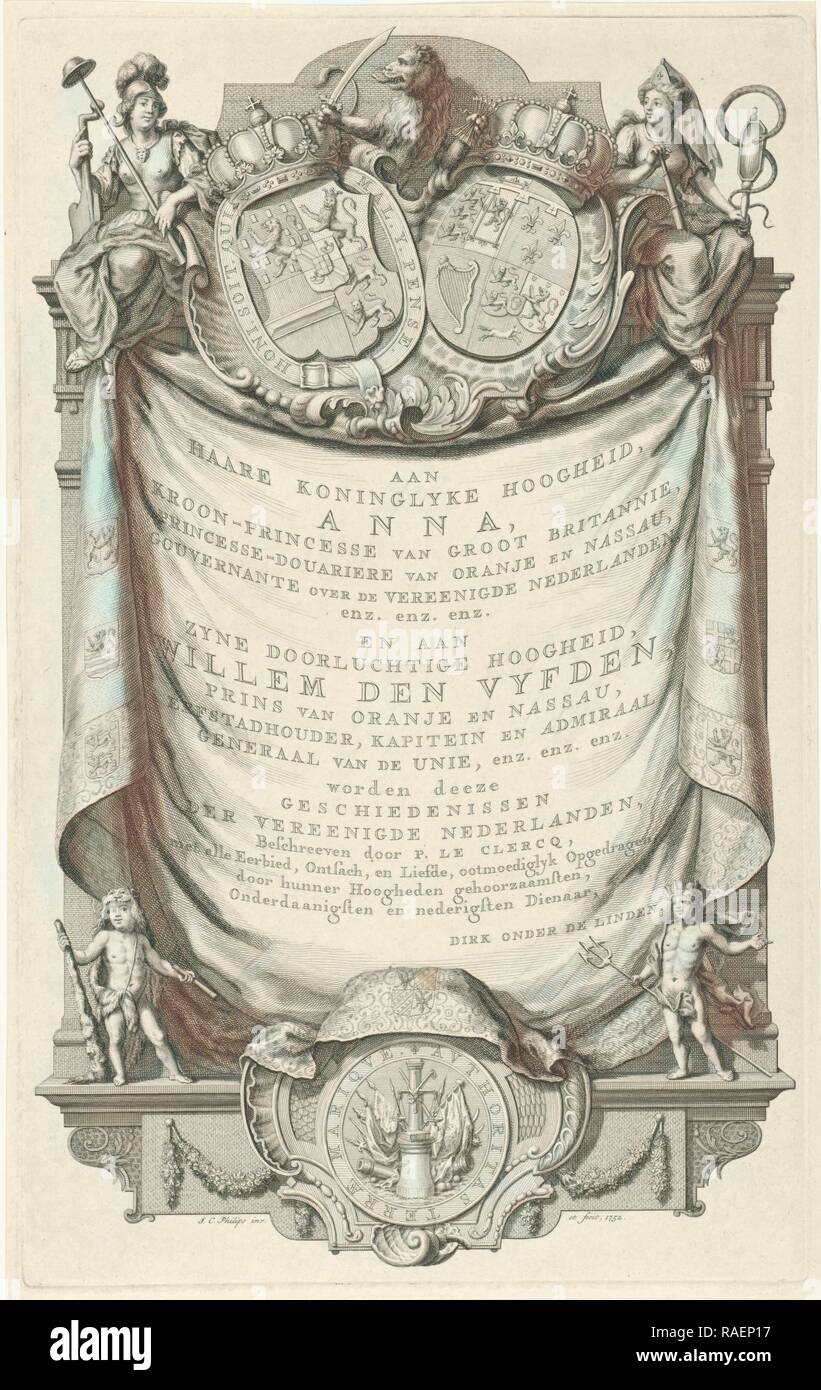 HONI SOIT QUI MAL Y PENSE.
AAN
HAARE KONINGLYKE HOOGHEID,
ANNA,
KROON-PRINCESSE VAN GROOT BRITANNIE,
PRINCESSE-DOUARIERE VAN ORANJE EN NASSAU,
GOUVERNANTE OVER DE VEREENIGDE NEDERLANDEN,
enz. enz. enz.
EN AAN
ZYNE DOORLUCHTIGE HOOGHEID,
WILLEM DEN VYFDEN,
PRINS VAN ORANJE EN NASSAU,
ERFSTADHOUDER, KAPITEIN EN ADMIRAAL
GENERAAL VAN DE UNIE, enz. enz. enz.
worden deeze
GESCHIEDENISSEN
DER VEREENIGDE NEDERLANDEN,
Beſchreeven door P. LE CLERCQ,
met alle Eerbied, Ontſach, en Liefde, ootmoediglyk Opgedragen,
door hunner Hoogheden gehoorzaamſten,
Onderdaanigſten en nederigſten Dienaar,
DIRK ONDER DE LINDEN.
AVTHORITAS TERRÆ MARIQVE.
J. C. Philips inv. et fecit, 1752.
alamy
alamy
Image ID: RAEP17
www.alamy.com